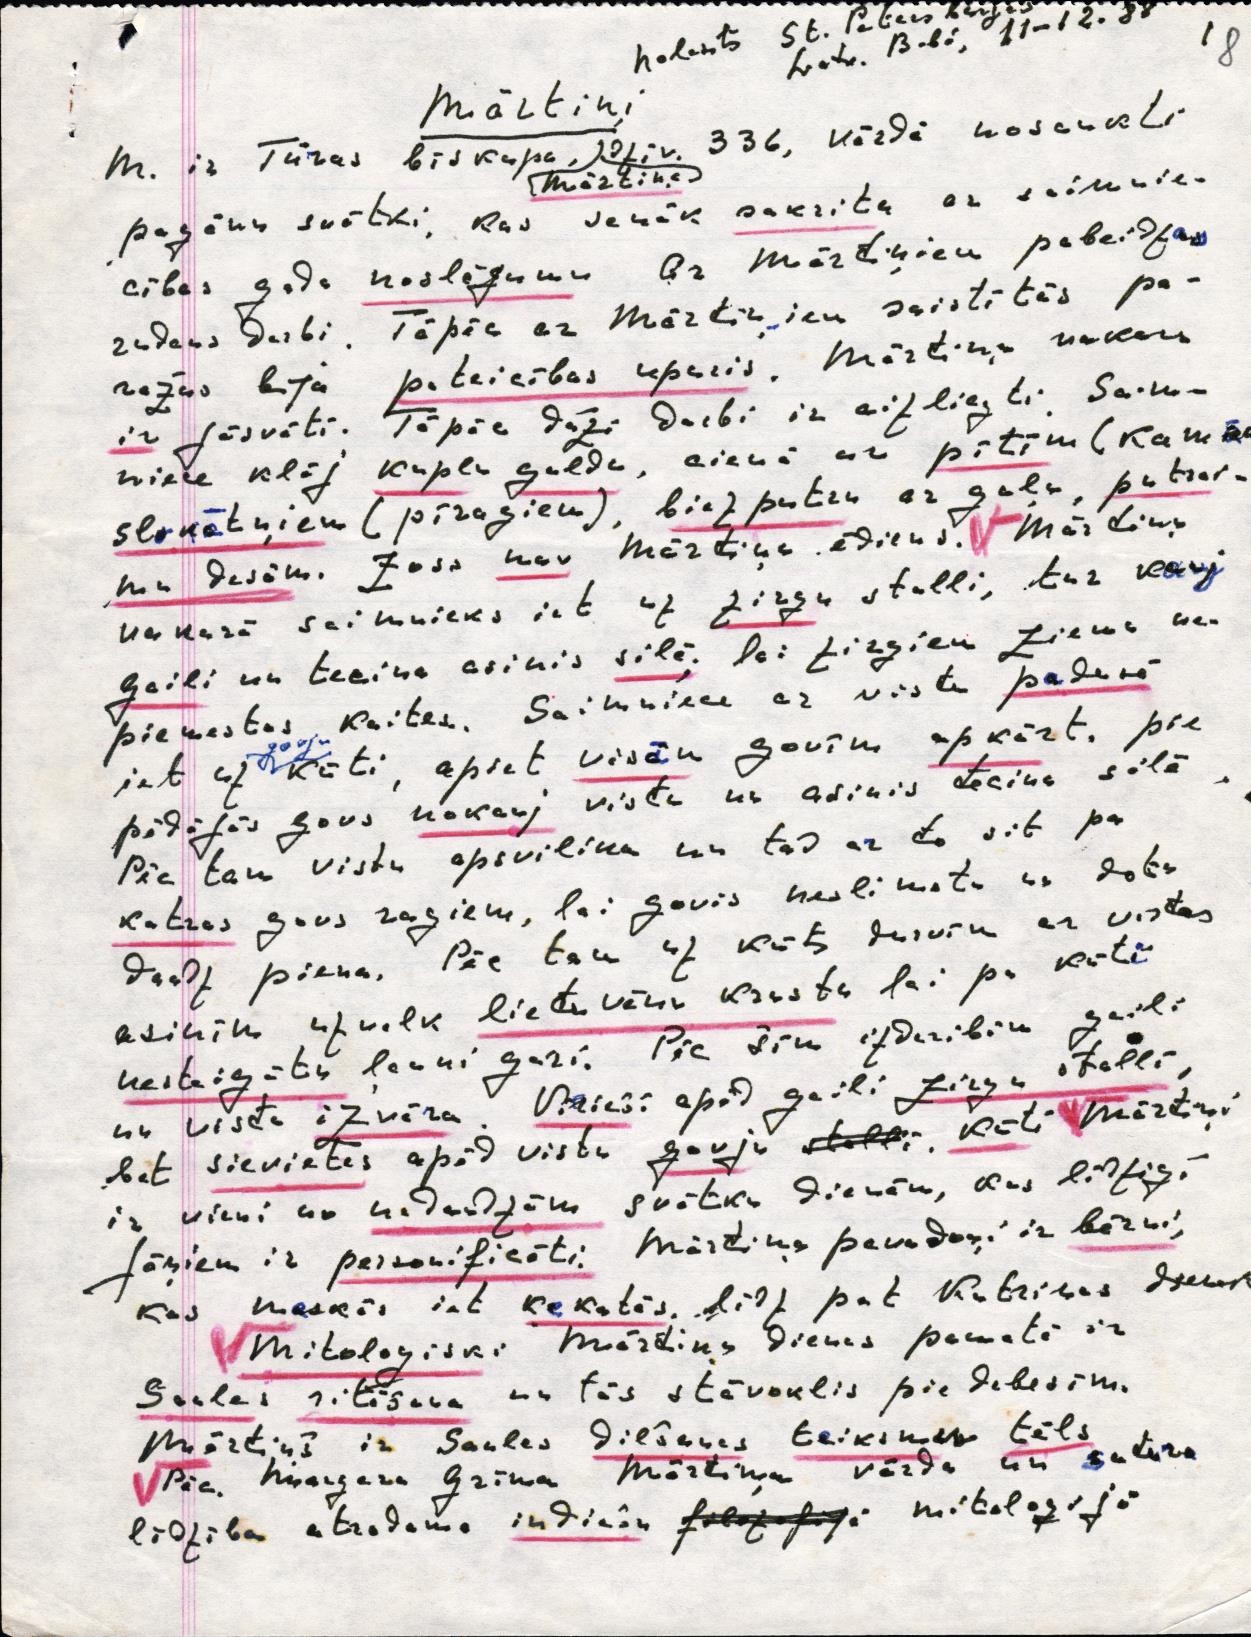 nolasīts St. Petersburgas
latv. B-bā, 11-12.88
18
Mārtiņi
M. ir Tūras bīskapa, dzīv. 336, vārdā nosaukti
Mārtiņa
pagānu svētki, kas senāk sakrita ar saimnie-
cības gada noslēgumu Ar Mārtiņiem pabeidzas
rudens darbi. Tāpēc ar Mārtiņiem saistītās pa-
ražas bija pateicības upuris. Mārtiņu vakars
ir jāsvētī. Tāpēc daži darbi ir aizliegti. Saim-
niece klāj kuplu galdu, cienā ar pītīm (kamām
slokātņiem (pīragiem), biezputru ar gaļu, putrai-
mu desām. Zoss nav Mārtiņu ēdiens. Mārtiņu
vakarā saimnieks iet uz zirgu stalli, tur kauj
gaili un tecina asinis silē, lai zirgiem ziemu ne-
piemestos kaites. Saimniece ar vistu padusē
iet uz govju kūti, apiet visām govīm apkārt, pie
pēdējās govs nokauj vistu un asinis tecina silē.
Pēc tam vistu apsvilina un tad ar to sit pa
katras govs ragiem, lai govis neslimotu un dotu
daudz piena. Pēc tam uz kūts durvīm ar vistas
asinīm uzvelk lietuvēna krustu lai pa kūti
nestaigātu ļauni gari. Pēc šīm izdarībām gaili
un vistu izvāra. Vīrieši apēd gaili zirgu stallī,
bet sievietes apēd vistu govju stallī. kūtī Mārtiņi
ir vieni no nedaudzām svētku dienām, kas līdzīgi
Jāņiem ir personificēti. Mārtiņu pavadoņi ir bērni,
kas maskās iet ķekatās, līdz pat Katrīnas dienai
Mitologiski Mārtiņu dienas pamatā ir
Saules ritēšana un tās stāvoklis pie debesīm.
Mārtiņš ir Saules dilšanas teiksmu tēls
Pēc Margara Grīma Mārtiņa vārda un satura
līdzība atrodama indiešu filozofijā mitoloģijā